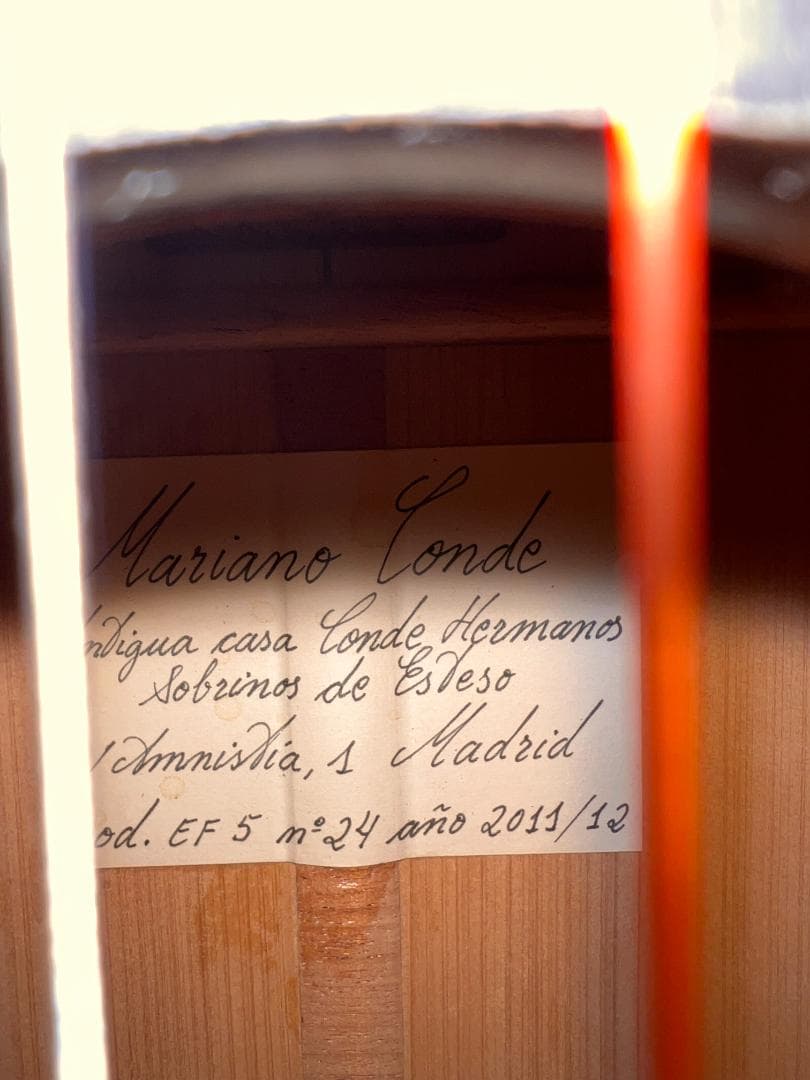 Mariano Conde
ntigua casa Conde Hermanos
Sobrinos de Esteso
/ Amnistía, 1 Madrid
od. EF 5 nº 24 año 2011/12